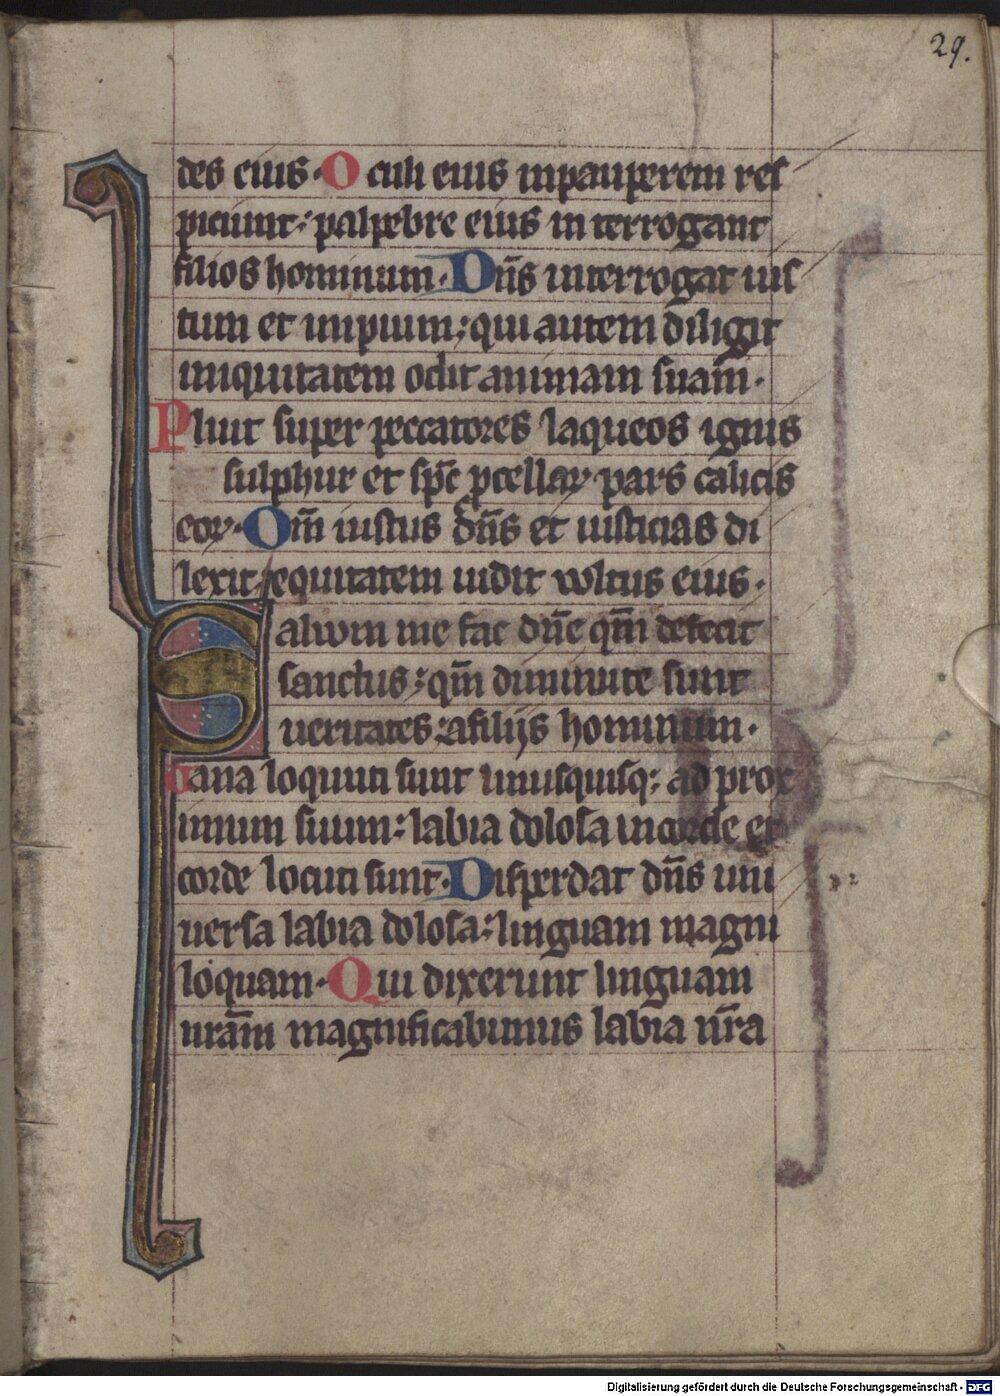 29.
des eius· Oculi eius inpauperem res
piciunt: palpebre eius in terrogant
filios hominum· Dn̄s interrogat ius
tum et impium; qui autem diligit
iniquitatem odit animam suam·
Pluit super peccatores laqueos ignis
sulphur et sp̄c ꝓcellaꝝ pars calicis
eoꝝ· Qm̄ iustus dn̄s et iusticias di
lexit: equitatem uidit vvltus eius·
Saluum me fac dn̄e qm̄ defecit
sanctus; qm̄ diminute sunt
ueritates: afilijs hominum·
Uana loquuti sunt unusquisq; ad prox
imum suum: labia dolosa incorde et
corde locuti sunt· Disperdat dn̄s uni
uersa labia dolosa: linguam magni
loquam· Qui dixerunt linguam
nr̄am magnificabimus labia nr̄a
Digitalisierung gefördert durch die Deutsche Forschungsgemeinschaft - DFG